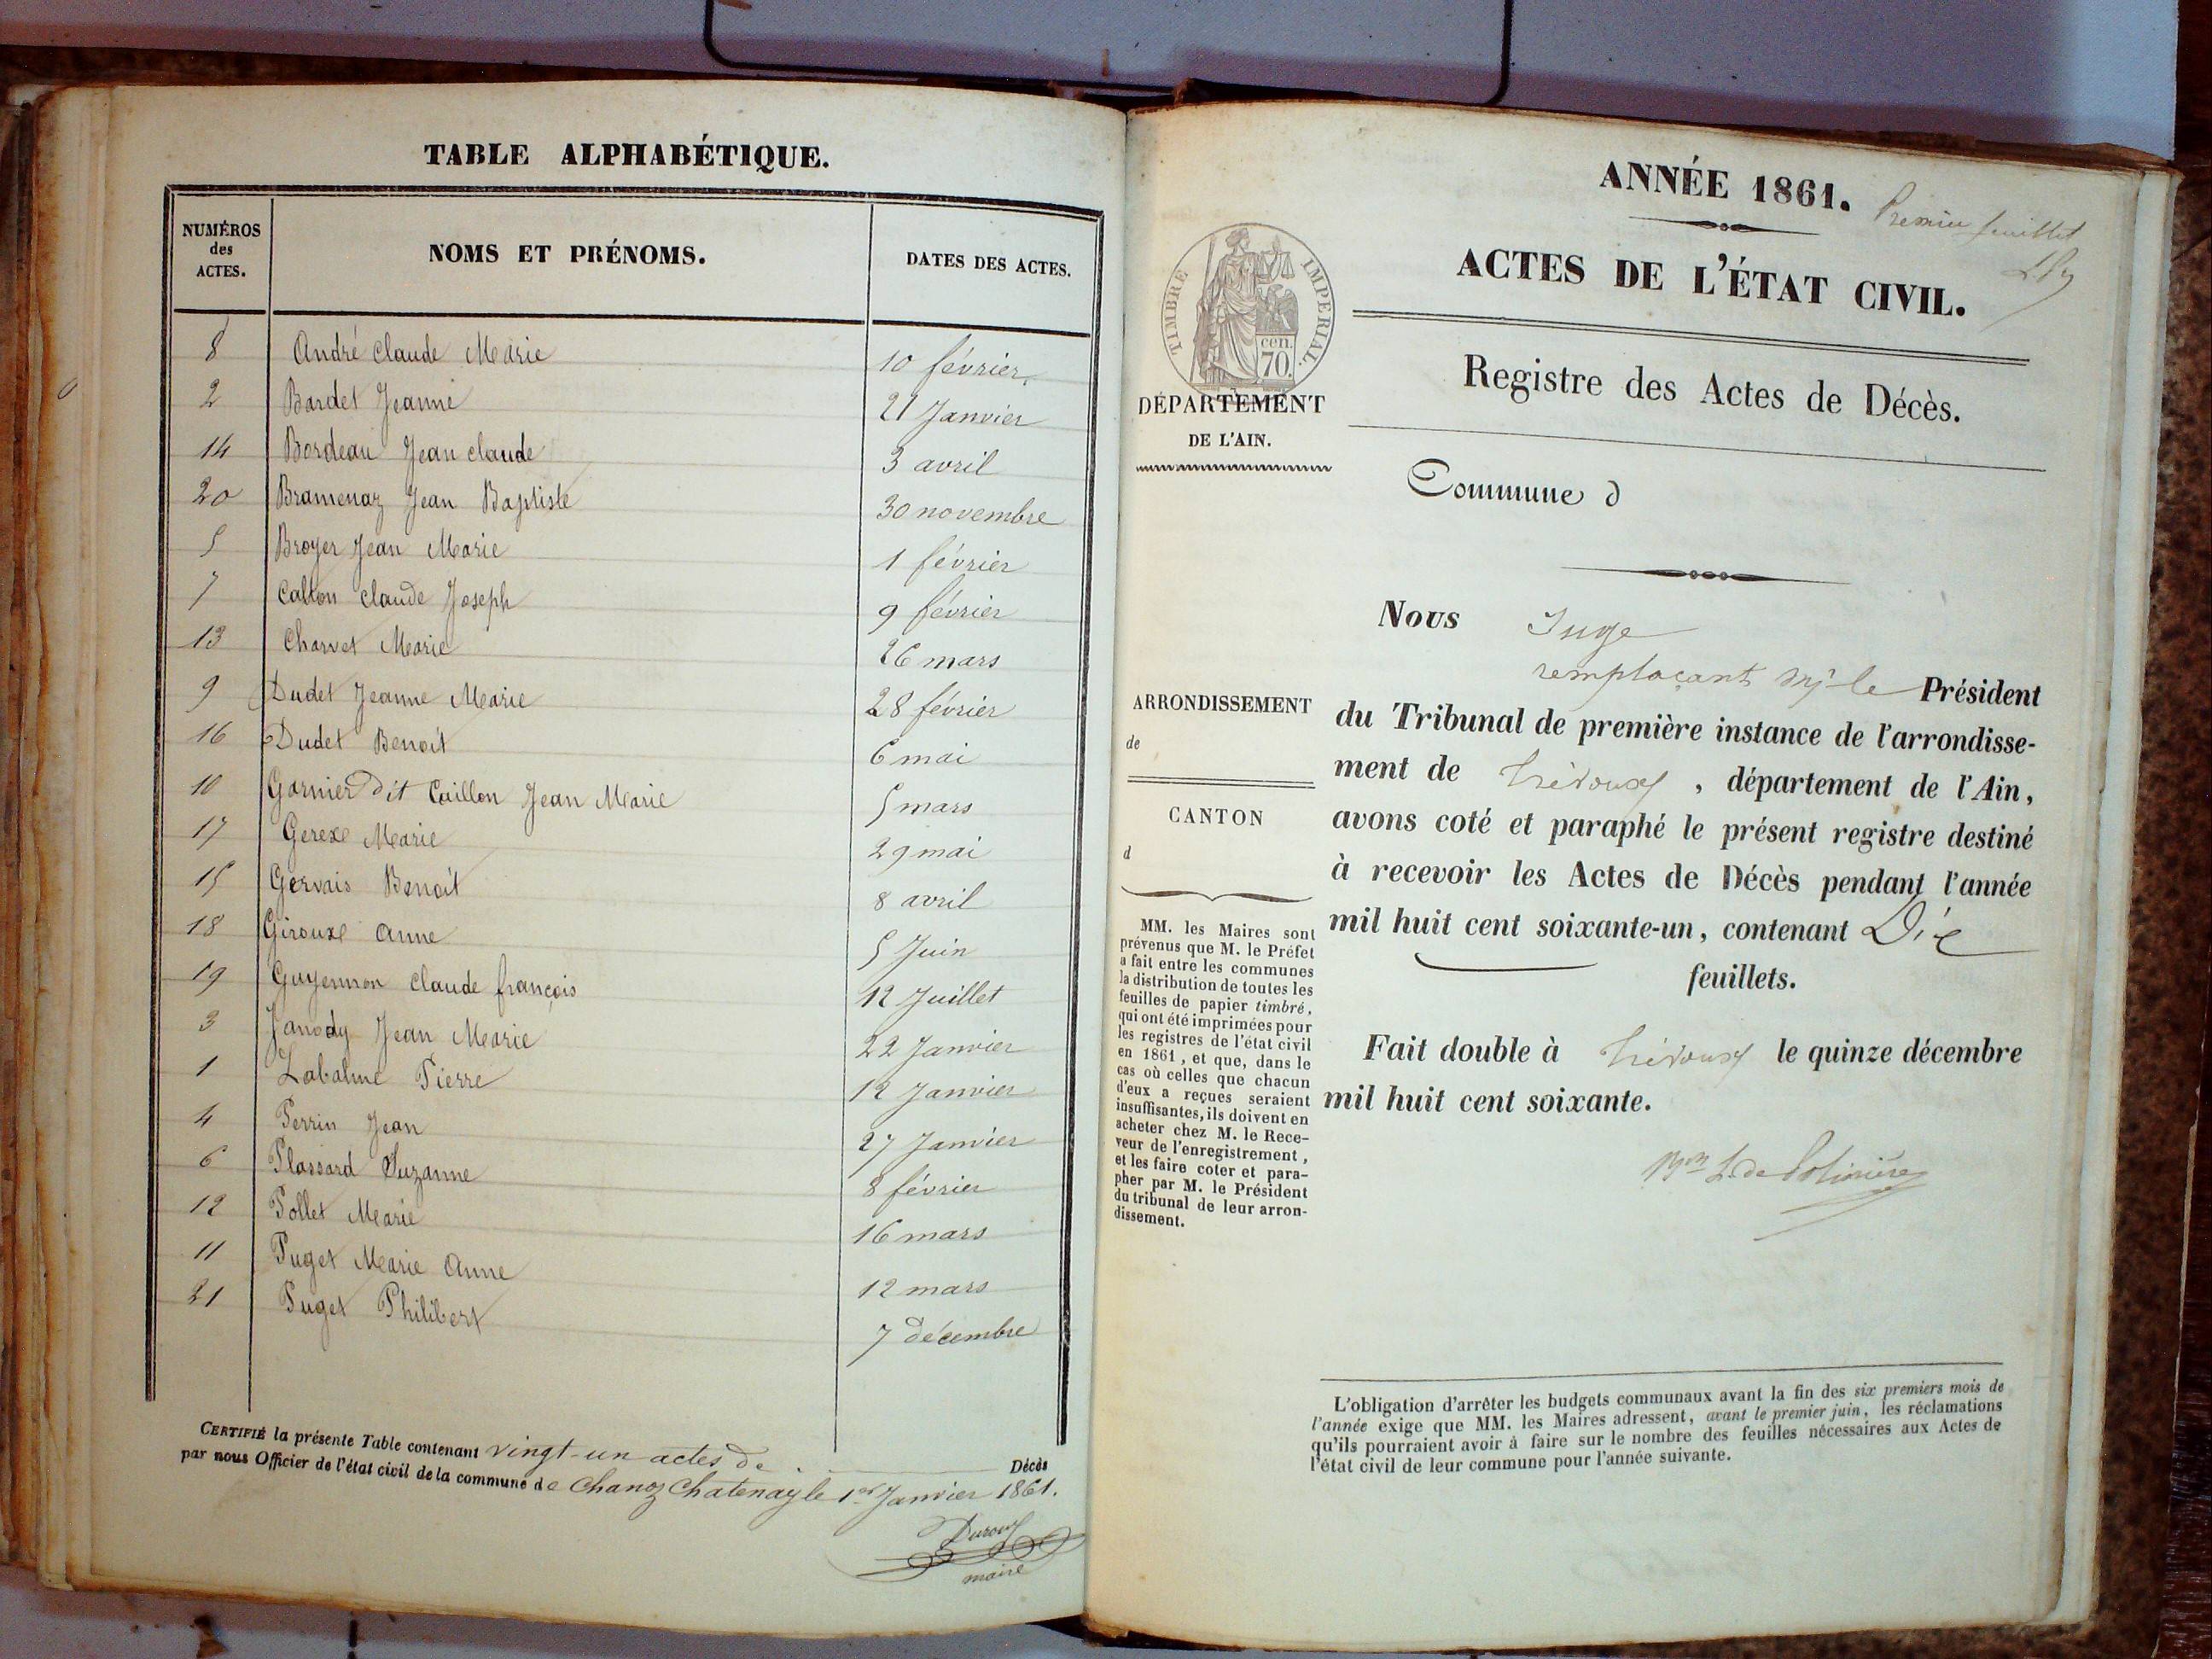 TABLE ALPHABÉTIQUE.
NUMÉROS des ACTES.
NOMS ET PRÉNOMS.
DATES DES ACTES.
8 André Claude Marie 10 février
2 Bardet Jeanne 21 Janvier
14 Bordeau Jean Claude 3 avril
20 Bramenaz Jean Baptiste 30 novembre
5 Broyer Jean Marie 1 février
7 Calton Claude Joseph 9 février
13 Charvet Marie 26 mars
9 Dudet Jeanne Marie 28 février
16 Dudet Benoit 6 mai
10 Garnier dit Caillon Jean Marie 5 mars
17 Gerexe Marie 29 mai
15 Gervais Benoit 8 avril
18 Girouxe Anne 5 Juin
19 Guyennon Claude françois 12 Juillet
3 Janody Jean Marie 22 Janvier
1 Labalme Pierre 12 Janvier
4 Perrin Jean 27 Janvier
6 Plassard Suzanne 8 février
12 Pollet Marie 16 mars
11 Puget Marie Anne 12 mars
21 Puget Philibert 7 décembre
CERTIFIÉ la présente Table contenant vingt-un actes de Décès
par nous Officier de l'état civil de la commune de Chanoz Chatenay le 1er Janvier 1861.
Duroux
maire
ANNÉE 1861.
Premier feuillet
ACTES DE L'ÉTAT CIVIL.
Registre des Actes de Décès.
TIMBRE IMPERIAL
cen.
70.
DÉPARTEMENT
DE L'AIN.
Commune d
Nous Juge
remplaçant Mr le Président
du Tribunal de première instance de l'arrondisse-
ment de Trévoux, département de l'Ain,
avons coté et paraphé le présent registre destiné
à recevoir les Actes de Décès pendant l'année
mil huit cent soixante-un, contenant Dix
feuillets.
Fait double à Trévoux le quinze décembre
mil huit cent soixante.
ARRONDISSEMENT
de
CANTON
d
MM. les Maires sont
prévenus que M. le Préfet
a fait entre les communes
la distribution de toutes les
feuilles de papier timbré,
qui ont été imprimées pour
les registres de l'état civil
en 1861, et que, dans le
cas où celles que chacun
d'eux a reçues seraient
insuffisantes, ils doivent en
acheter chez M. le Rece-
veur de l'enregistrement,
et les faire coter et para-
pher par M. le Président
du tribunal de leur arron-
dissement.
L'obligation d'arrêter les budgets communaux avant la fin des six premiers mois de
l'année exige que MM. les Maires adressent, avant le premier juin, les réclamations
qu'ils pourraient avoir à faire sur le nombre des feuilles nécessaires aux Actes de
l'état civil de leur commune pour l'année suivante.